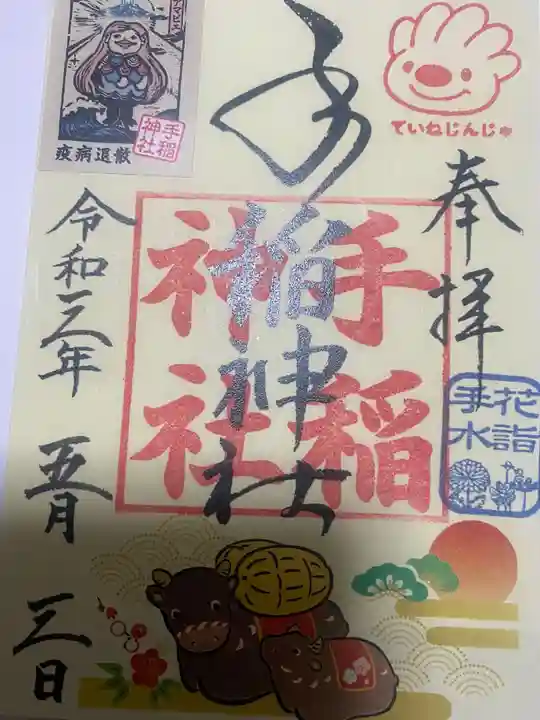 奉拝
手稲神社
令和三年
五月
三日
手稲
神社
ていねじんじゃ
花詣
手水
アマビエ
手稲
神社
疫病退散